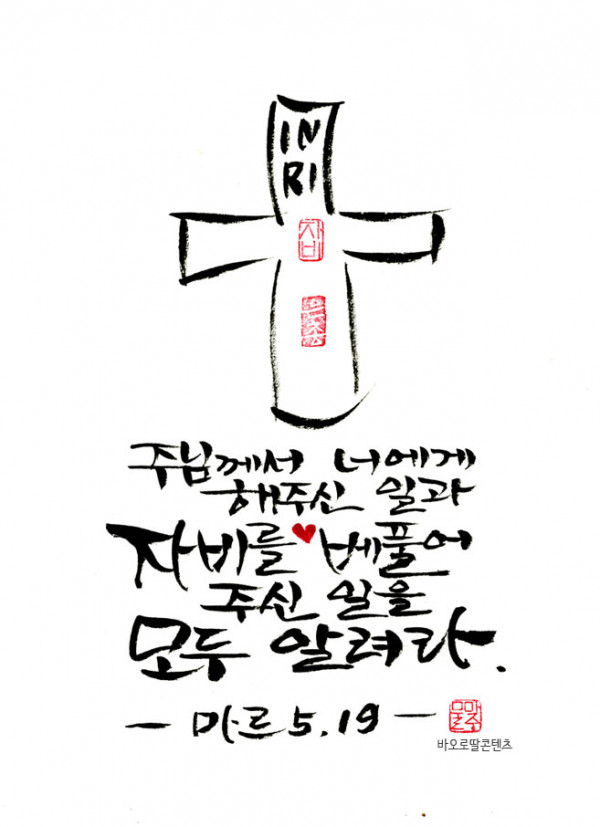 IN
RI
자비
은총
주님께서 너에게
해주신 일과
자비를 베풀어
주신 일을
모두 알려라.
- 마르 5.19 -
바오로딸콘텐츠